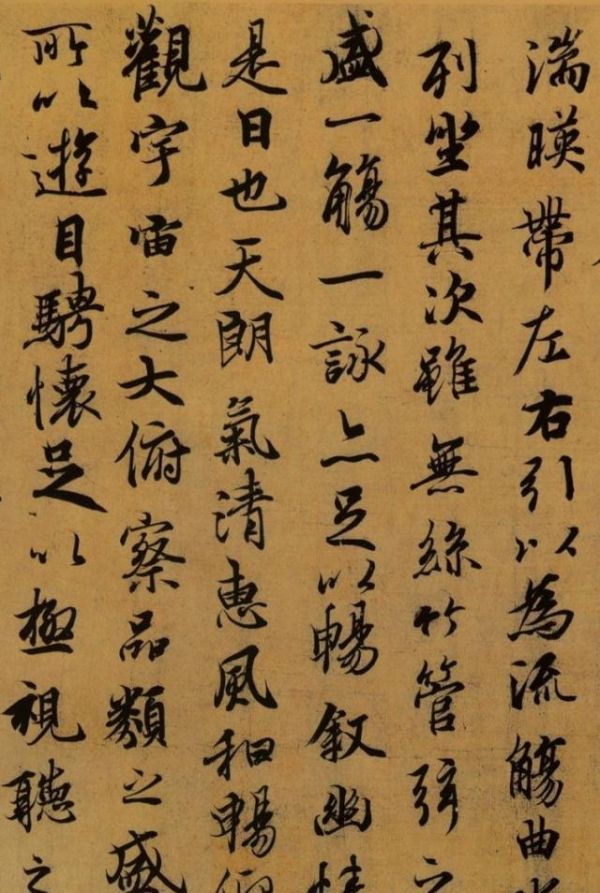 湍暎帶左右引以為流觴曲
列坐其次雖無絲竹管弦之
盛一觴一詠亦足以暢叙幽情
是日也天朗氣清惠風和暢仰
觀宇宙之大俯察品類之盛
所以遊目騁懷足以極視聽之